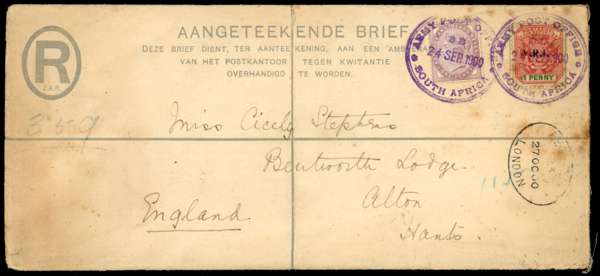 AANGETEEKENDE BRIEF
DEZE BRIEF DIENT, TER AANTEEKENING, AAN EEN
VAN HET POSTKANTOOR TEGEN KWITANTIE
OVERHANDIGD TE WORDEN.
R
Z.A.R.
ARMY POST OFFICE
24 SEP 1900
SOUTH AFRICA
ARMY POST OFFICE
1900
SOUTH AFRICA
1 PENNY
359
Miss Cicely Stephens
Bentworth Lodge.
Alton
England
Hants.
27 OC 00
LONDON